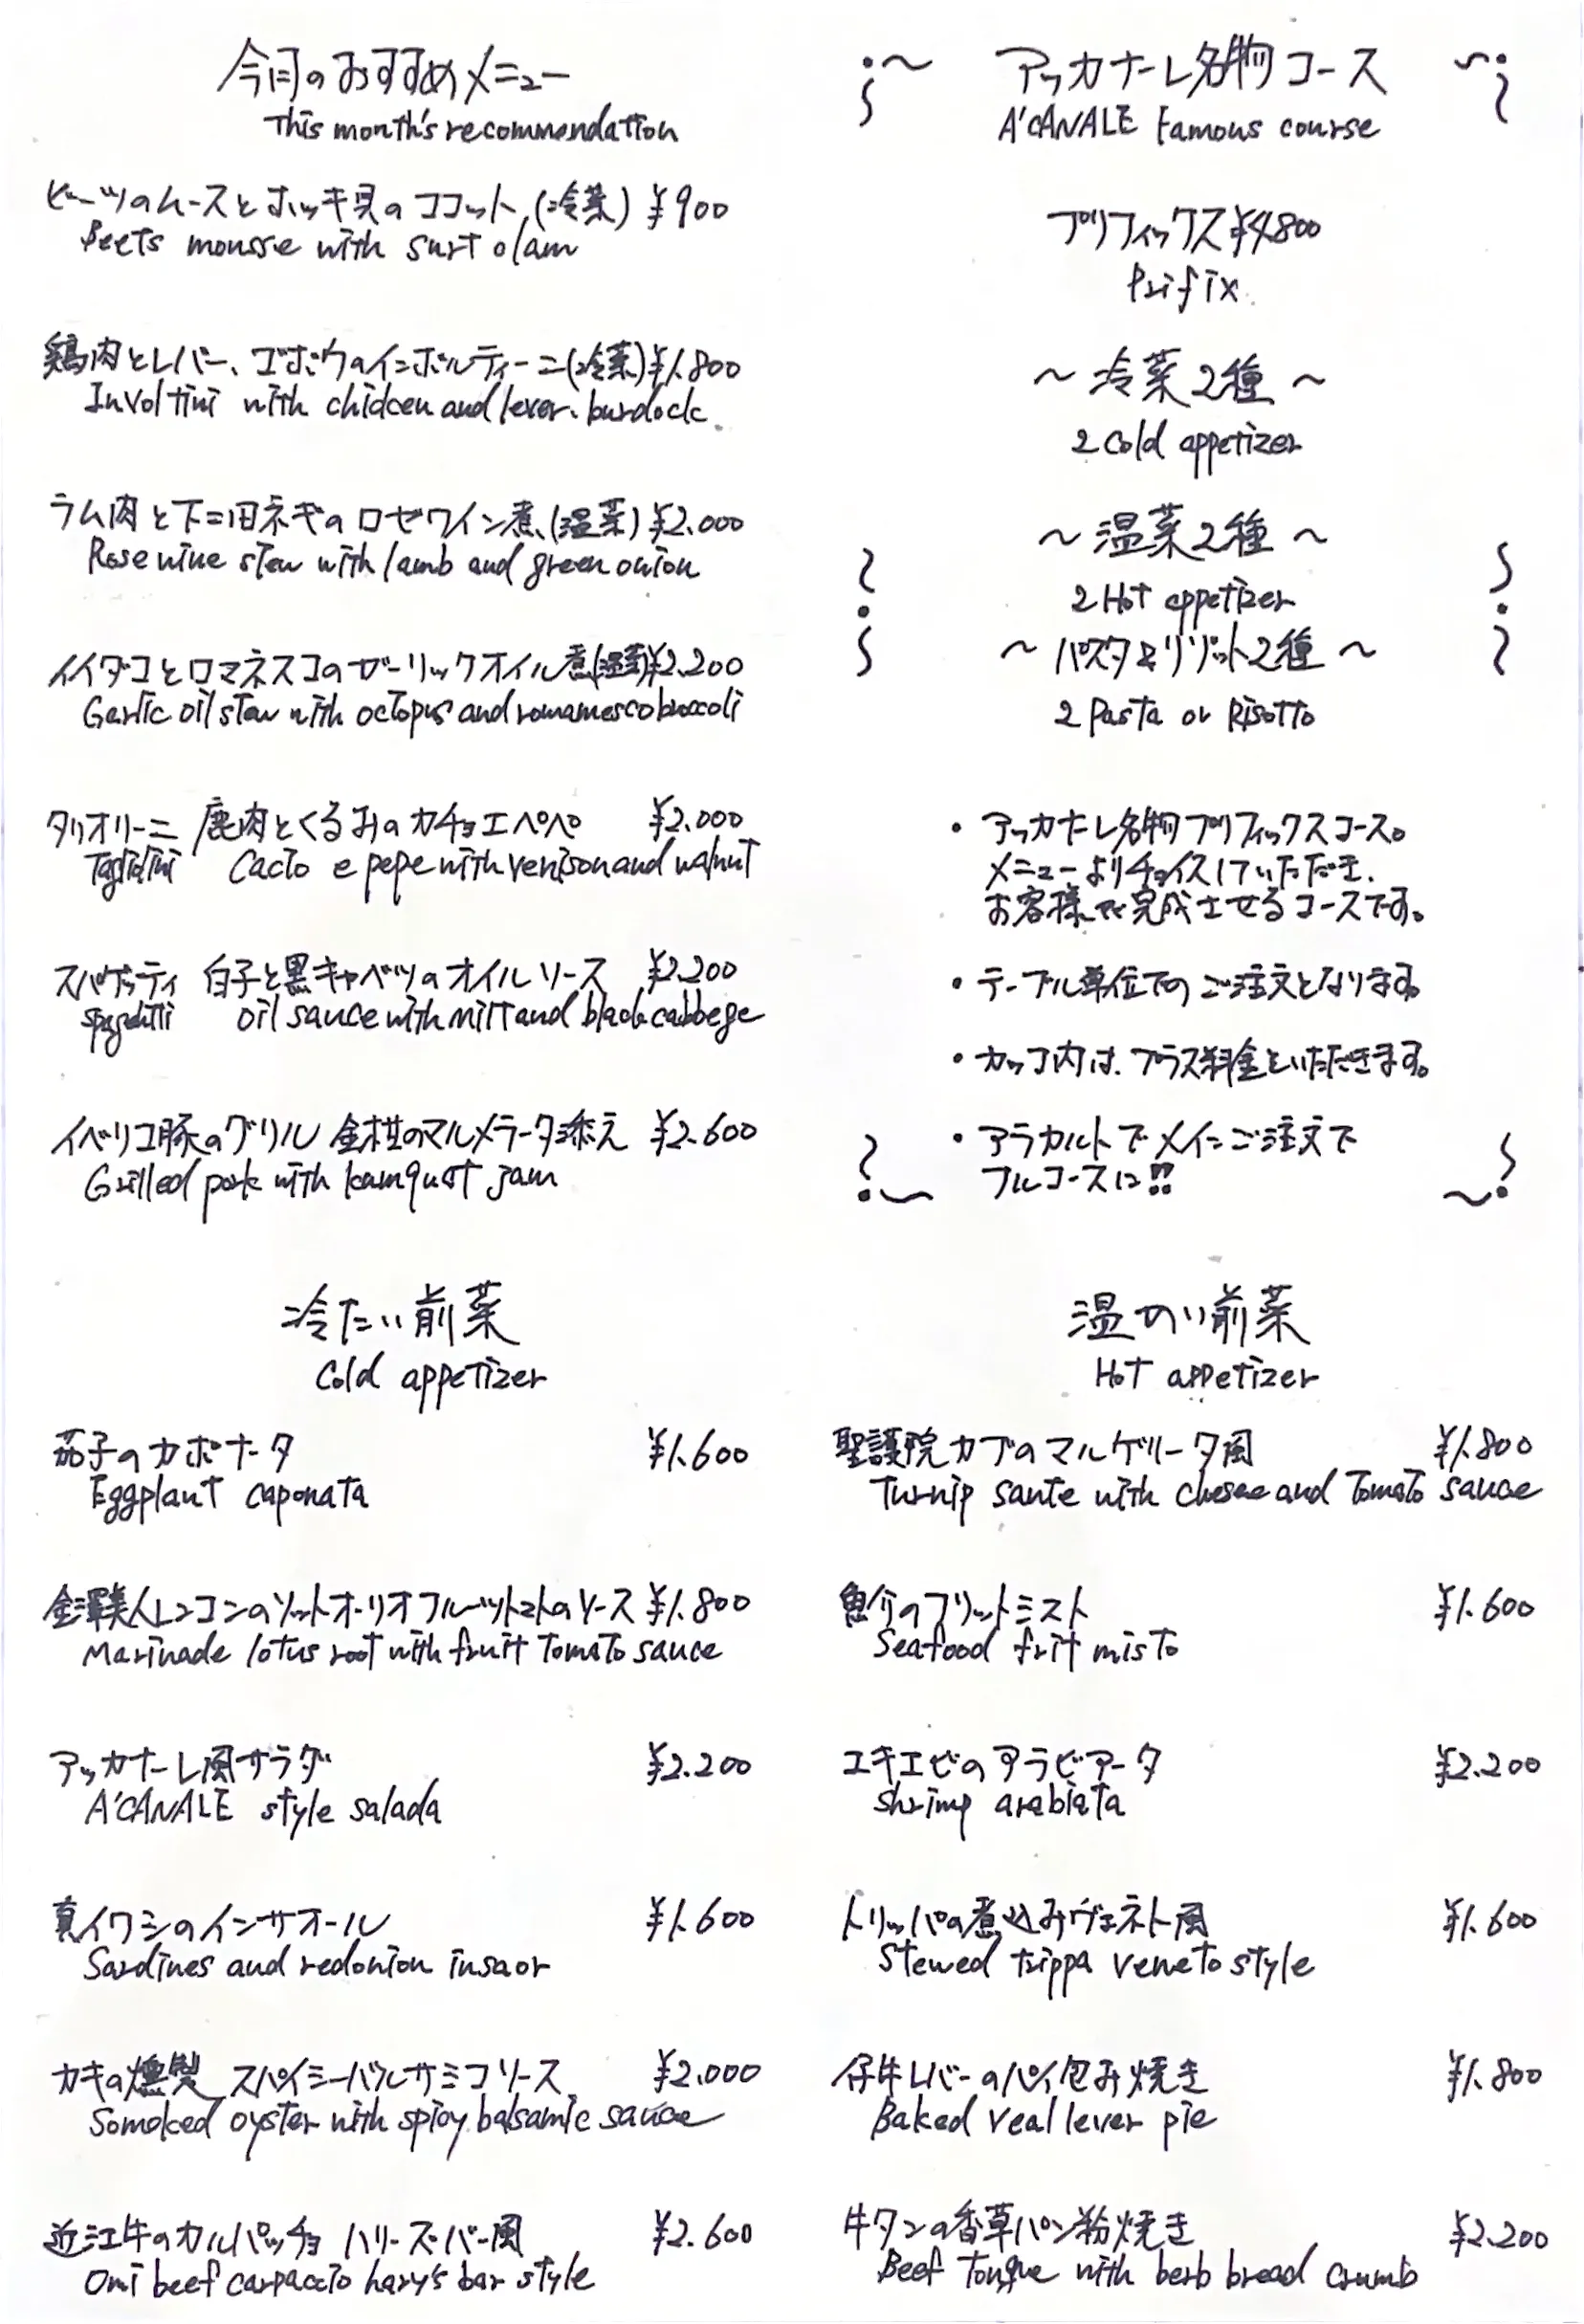 今月のおすすめメニュー
This month's recommendation
ビーツのムースとホッキ貝のココット(冷菜) ¥900
Beets mousse with surf clam
鶏肉とレバー、ゴボウのインボルティーニ(冷菜) ¥1.800
Involtini with chicken and lever. burdock.
ラム肉と下仁田ネギのロゼワイン煮(温菜) ¥2.000
Rose wine stew with lamb and green onion
イイダコとロマネスコのガーリックオイル煮(温菜) ¥2.200
Garlic oil stew with octopus and romamesco broccoli
タリオリーニ 鹿肉とくるみのカチョエペペ ¥2.000
Tagliolini Cacio e pepe with venison and walnut
スパゲッティ 白子と黒キャベツのオイルソース ¥2.200
Spaghetti oil sauce with milt and black cabbege
イベリコ豚のグリル 金柑のマルメラータ添え ¥2.600
Grilled pork with kamquat jam
アッカナーレ名物コース
A'CANALE Famous course
プリフィックス ¥4.800
Prifix
～ 冷菜2種 ～
2 Cold appetizer
～ 温菜2種 ～
2 Hot appetizer
～ パスタ&リゾット2種 ～
2 Pasta or Risotto
・アッカナーレ名物プリフィックスコース。
メニューよりチョイスしていただき、
お客様で完成させるコースです。
・テーブル単位でのご注文となります。
・カッコ内は、プラス料金をいただきます。
・アラカルトでメインご注文で
フルコースに!!
冷たい前菜
Cold appetizer
茄子のカポナータ ¥1.600
Eggplant caponata
金澤美人レンコンのソットオーリオ フルーツトマトのソース ¥1.800
Marinade lotus root with fruit tomato sauce
アッカナーレ風サラダ ¥2.200
A'CANALE style salada
真イワシのインサオール ¥1.600
Sardines and redonion insaor
カキの燻製 スパイシーバルサミコソース ¥2.000
Somoked oyster with spicy balsamic sauce
近江牛のカルパッチョ ハリーズ・バー風 ¥2.600
Omi beef carpaccio hary's bar style
温かい前菜
Hot appetizer
聖護院カブのマルゲリータ風 ¥1.800
Turnip saute with cheese and tomato sauce
魚介のフリットミスト ¥1.600
Seafood frit misto
エキエビのアラビアータ ¥2.200
Shrimp arabiata
トリッパの煮込みヴェネト風 ¥1.600
Stewed trippa veneto style
仔牛レバーのパイ包み焼き ¥1.800
Baked veal lever pie
牛タンの香草パン粉焼き ¥2.200
Beef tongue with herb bread crumb